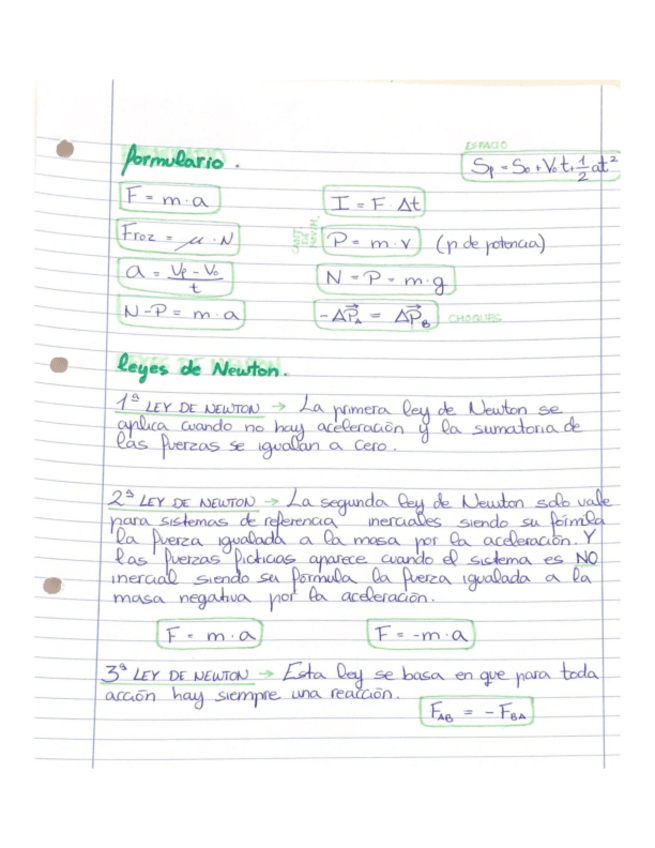 ESPACIO
formulario.
Sf = S₀ + V₀t + 1/2 at²
F = m·a
I = F·Δt
Froz = μ·N
CANT. DE MOVIM.
P = m·v (p de potencia)
a = Vf - V₀ / t
N = P = m·g
N - P = m·a
-ΔP⃗A = ΔP⃗B CHOQUES
leyes de Newton.
1ª LEY DE NEWTON → La primera ley de Newton se
aplica cuando no hay aceleración y la sumatoria de
las fuerzas se igualan a cero.
2ª LEY DE NEWTON → La segunda ley de Newton solo vale
para sistemas de referencia inerciales siendo su fórmula
la fuerza igualada a la masa por la aceleración. Y
las fuerzas ficticias aparece cuando el sistema es NO
inercial siendo su fórmula la fuerza igualada a la
masa negativa por la aceleración.
F = m·a
F = -m·a
3ª LEY DE NEWTON → Esta ley se basa en que para toda
acción hay siempre una reacción.
FAB = -FBA